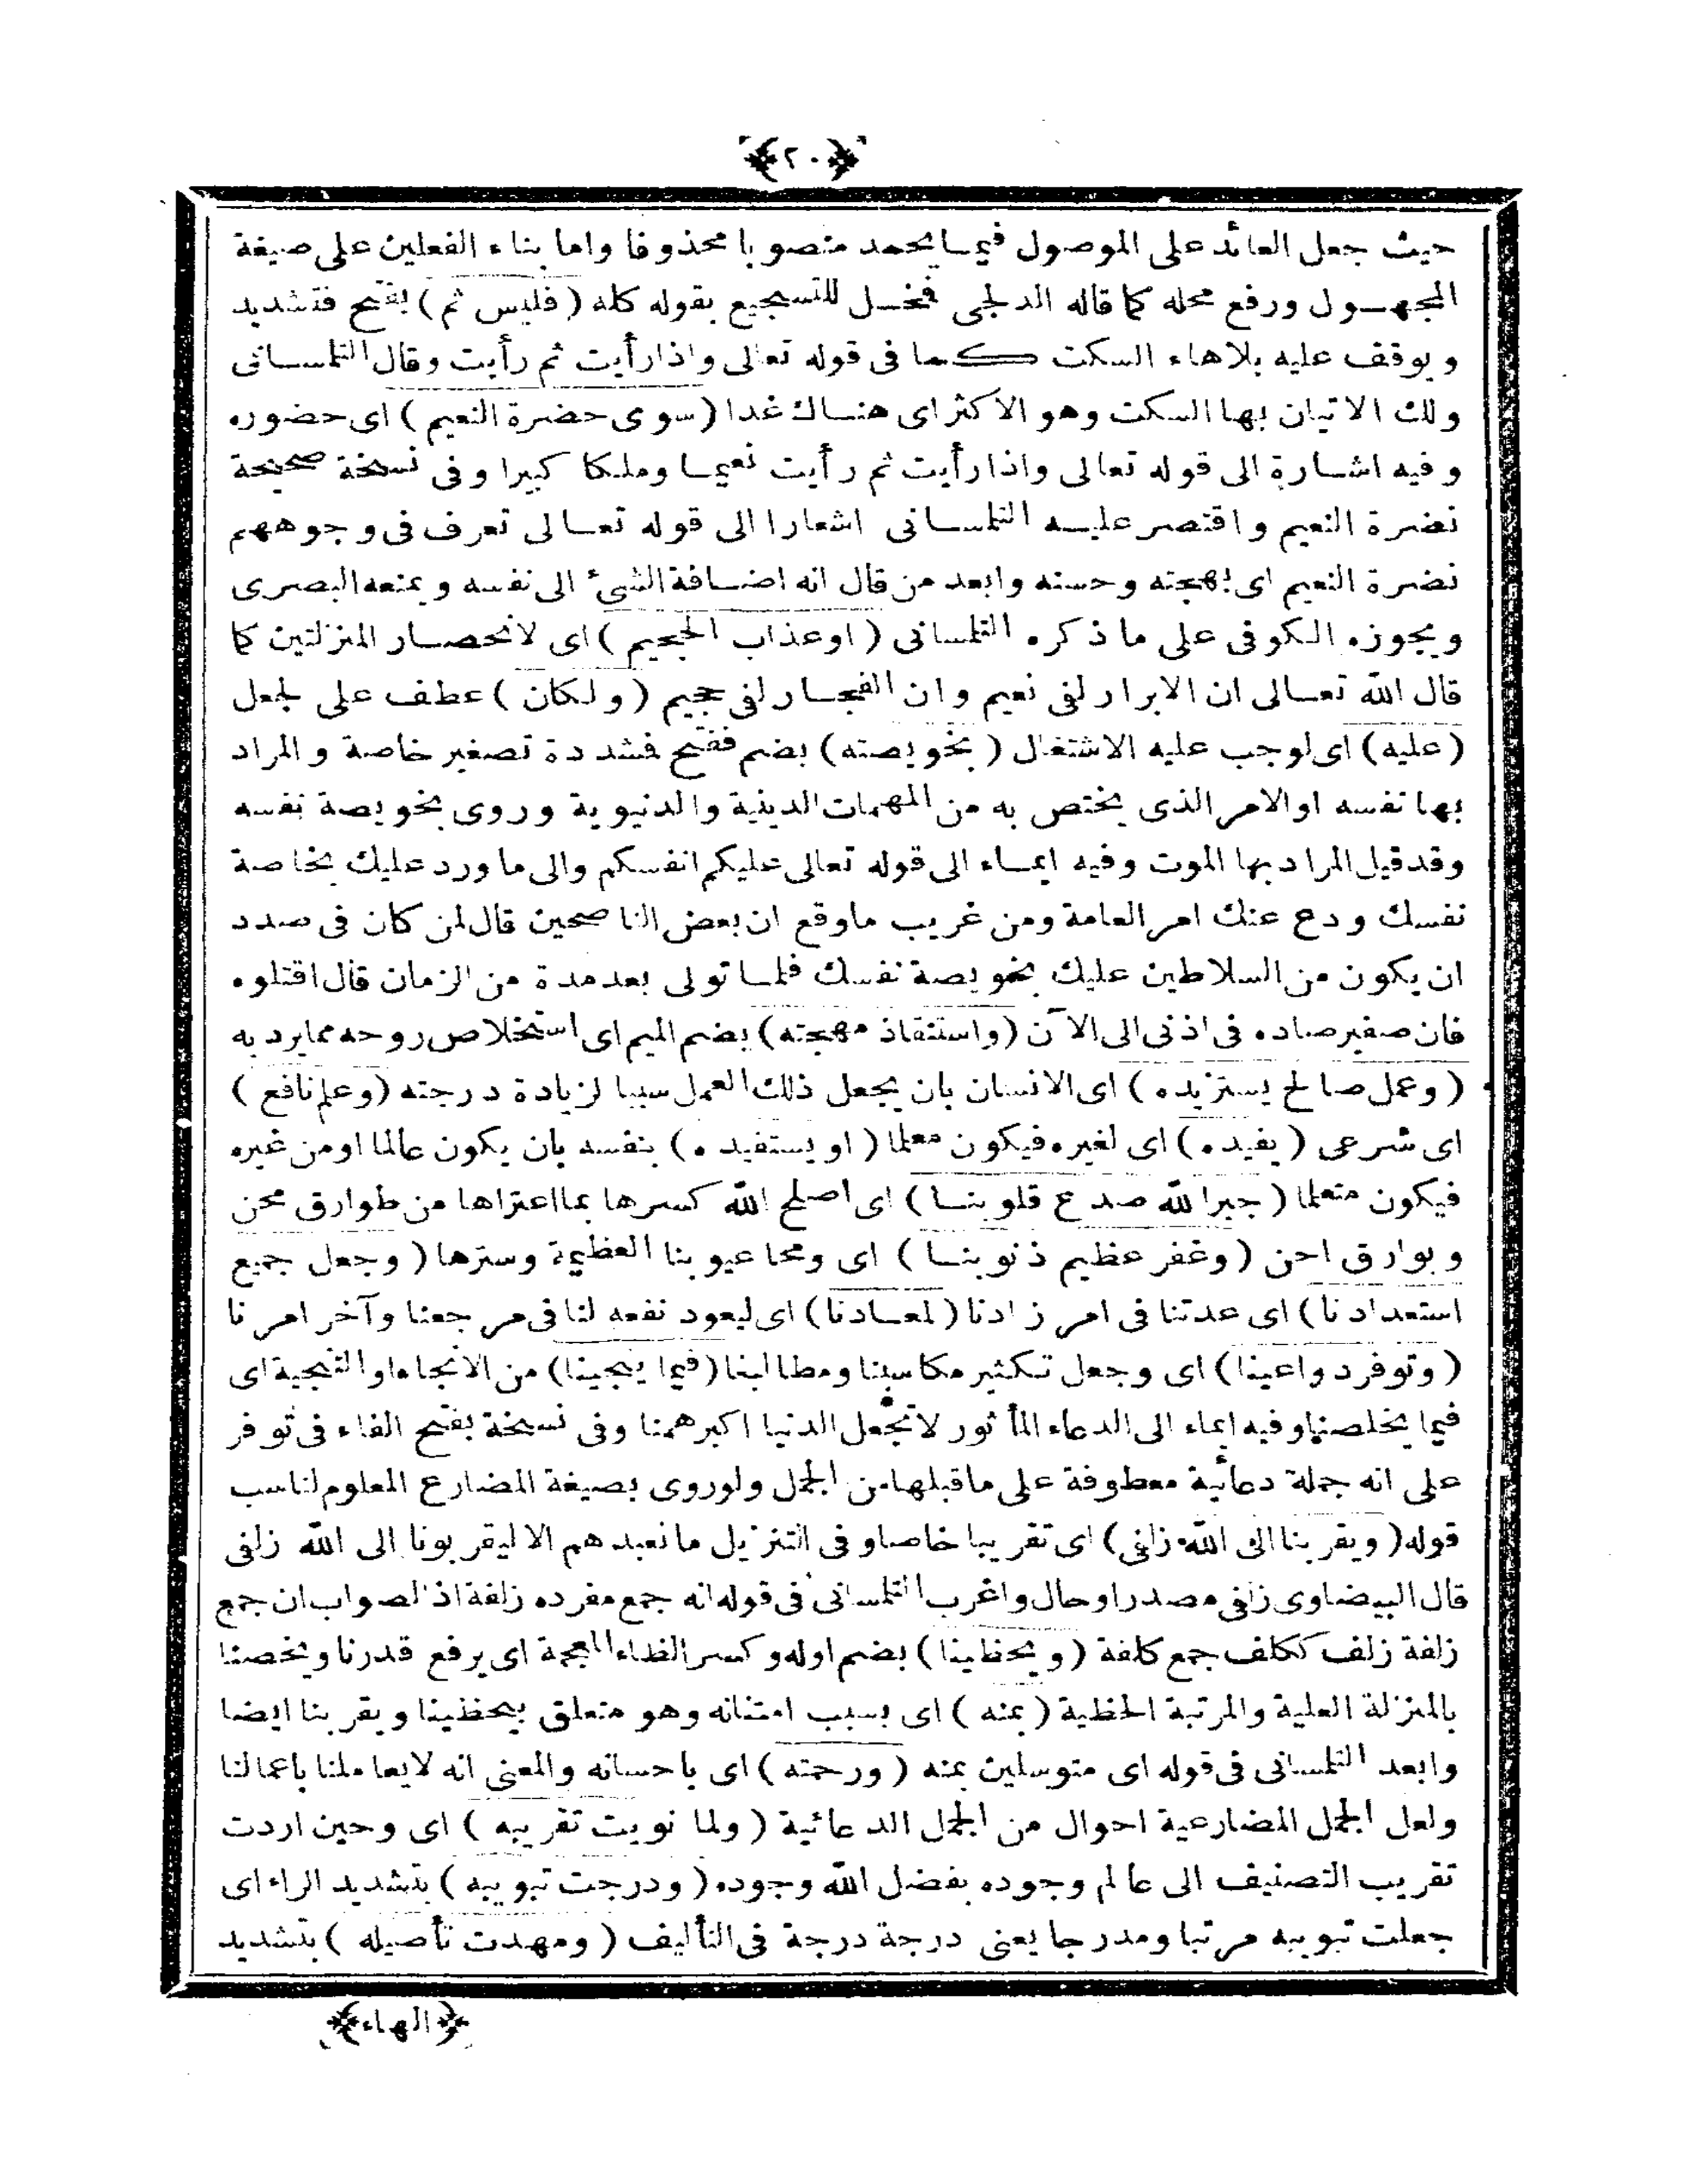 ﴿٢٠﴾
حيث جعل العائد على الموصول فيما يحمد منصوبا محذوفا واما بناء الفعلين على صيغة
المجهول ورفع محله كما قاله الدلجى فمخل للتسجيع بقوله كله (فليس ثم) بفتح فتشديد
ويوقف عليه بلاهاء السكت كما فى قوله تعالى واذا رأيت ثم رأيت وقال التلمسانى
ولك الاتيان بها السكت وهو الاكثر اى هناك غدا (سوى حضرة النعيم) اى حضوره
وفيه اشارة الى قوله تعالى واذا رأيت ثم رأيت نعيما وملكا كبيرا وفى نسخة صحيحة
نضرة النعيم واقتصر عليه التلمسانى اشعارا الى قوله تعالى تعرف فى وجوههم
نضرة النعيم اى بهجته وحسنه وابعد من قال انه اضافة الشئ الى نفسه ويمنعه البصرى
ويجوزه الكوفى على ما ذكره التلمسانى (او عذاب الجحيم) اى لانحصار المنزلتين كما
قال الله تعالى ان الابرار لفى نعيم وان الفجار لفى جحيم (ولكان) عطف على لجعل
(عليه) اى لوجب عليه الاشتغال (بخويصته) بضم ففتح فشددة تصغير خاصة والمراد
بها نفسه او الامر الذى يختص به من المهمات الدينية والدنيوية وروى بخويصة نفسه
وقد قيل المراد بها الموت وفيه ايماء الى قوله تعالى عليكم انفسكم والى ما ورد عليك بخاصة
نفسك ودع عنك امر العامة ومن غريب ما وقع ان بعض الناصحين قال لمن كان فى صدد
ان يكون من السلاطين عليك بخويصة نفسك فلما تولى بعد مدة من الزمان قال اقتلوه
فان صفير صاده فى اذنى الى الآن (واستنقاذ مهجته) بضم الميم اى استخلاص روحه مما يرد به
(وعمل صالح يستزيده) اى الانسان بان يجعل ذلك العمل سببا لزيادة درجته (وعلم نافع)
اى شرعى (يفيده) اى لغيره فيكون معلما (او يستفيده) بنفسه بان يكون عالما او من غيره
فيكون متعلما (جبر الله صدع قلوبنا) اى اصلح الله كسرها بما اعتراها من طوارق محن
وبوارق احن (وغفر عظيم ذنوبنا) اى ومحا عيوبنا العظيمة وسترها (وجعل جميع
استعدادنا) اى عدتنا فى امر زادنا (لمعادنا) اى ليعود نفعه لنا فى مرجعنا وآخر امرنا
(وتوفر دواعينا) اى وجعل تكثير مكاسبنا ومطالبنا (فيما ينجينا) من الانجاء او التنجية اى
فيما يخلصنا وفيه ايماء الى الدعاء المأثور لا تجعل الدنيا اكبر همنا وفى نسخة بفتح الفاء فى توفر
على انه جملة دعائية معطوفة على ما قبلها من الجمل ولو روى بصيغة المضارع المعلوم لناسب
قوله (ويقربنا الى الله زلفى) اى تقريبا خاصا وفى التنزيل ما نعبدهم الا ليقربونا الى الله زلفى
قال البيضاوى زلفى مصدر او حال واغرب التلمسانى فى قوله انه جمع مفرده زلفة اذ الصواب ان جمع
زلفة زلف ككلف جمع كلفة (ويحظينا) بضم اوله وكسر الظاء المعجمة اى يرفع قدرنا ويخصنا
بالمنزلة العلية والمرتبة الحظية (بمنه) اى بسبب امتنانه وهو متعلق بيحظينا ويقربنا ايضا
وابعد التلمسانى فى قوله اى متوسلين بمنه (ورحمته) اى باحسانه والمعنى انه لا يعاملنا باعمالنا
ولعل الجمل المضارعية احوال من الجمل الدعائية (ولما نويت تقريبه) اى وحين اردت
تقريب التصنيف الى عالم وجوده بفضل الله وجوده (ودرجت تبويبه) بتشديد الراء اى
جعلت تبويبه مرتبا ومدرجا يعنى درجة درجة فى التأليف (ومهدت تأصيله) بتشديد
﴿الهاء﴾